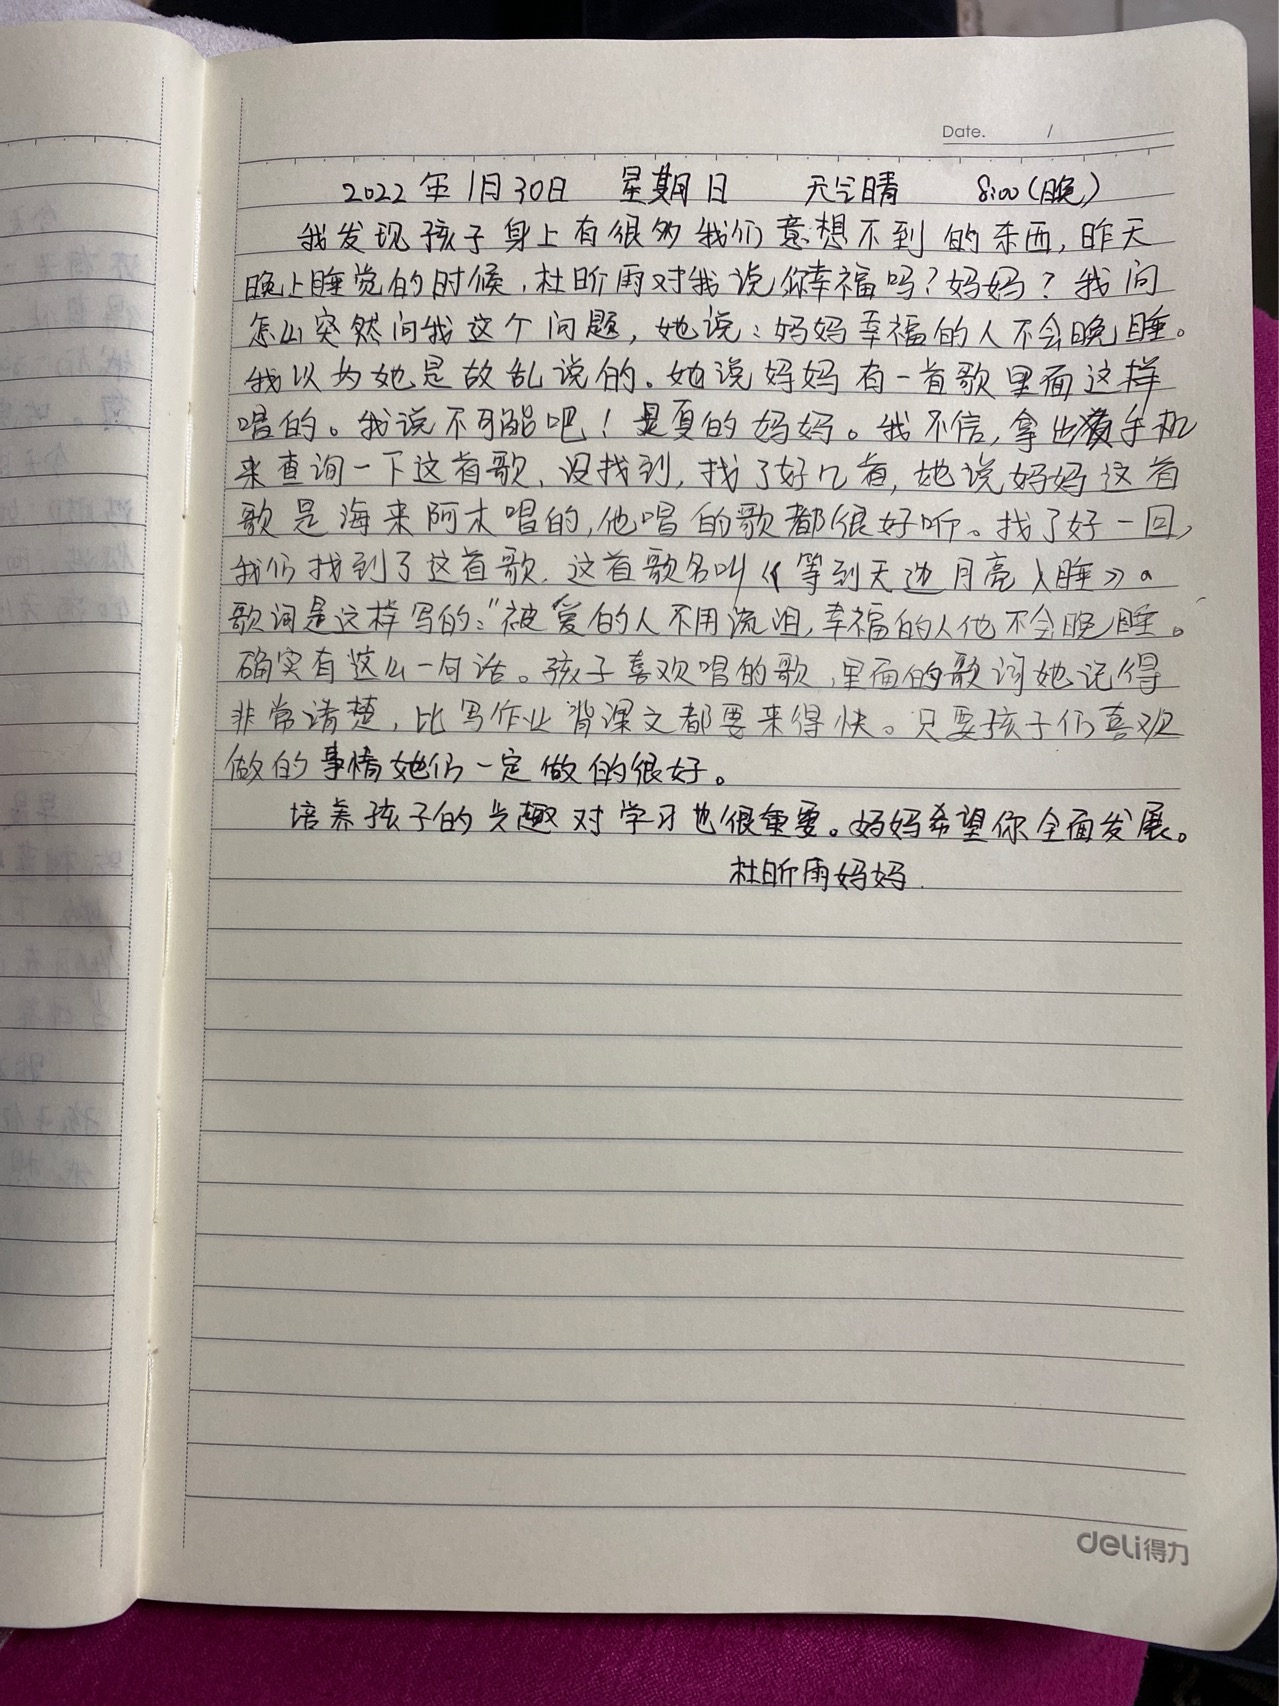 Date. /
2022年1月30日 星期日 天气晴 8:00(晚)
我发现孩子身上有很多我们意想不到的东西,昨天
晚上睡觉的时候,杜昕雨对我说你幸福吗?妈妈?我问
怎么突然问我这个问题,她说:妈妈幸福的人不会晚睡。
我以为她是故乱说的。她说妈妈有一首歌里面这样
唱的。我说不可能吧!是真的妈妈。我不信,拿出手机
来查询一下这首歌,没找到,找了好几首,她说妈妈这首
歌是海来阿木唱的,他唱的歌都很好听。找了好一回,
我们找到了这首歌,这首歌名叫《等到天边月亮入睡》。
歌词是这样写的:“被爱的人不用流泪,幸福的人他不会晚睡。
确实有这么一句话。孩子喜欢唱的歌,里面的歌词她记得
非常清楚,比写作业背课文都要来得快。只要孩子们喜欢
做的事情她们一定做的很好。
培养孩子的兴趣对学习也很重要。妈妈希望你全面发展。
杜昕雨妈妈.
deli得力